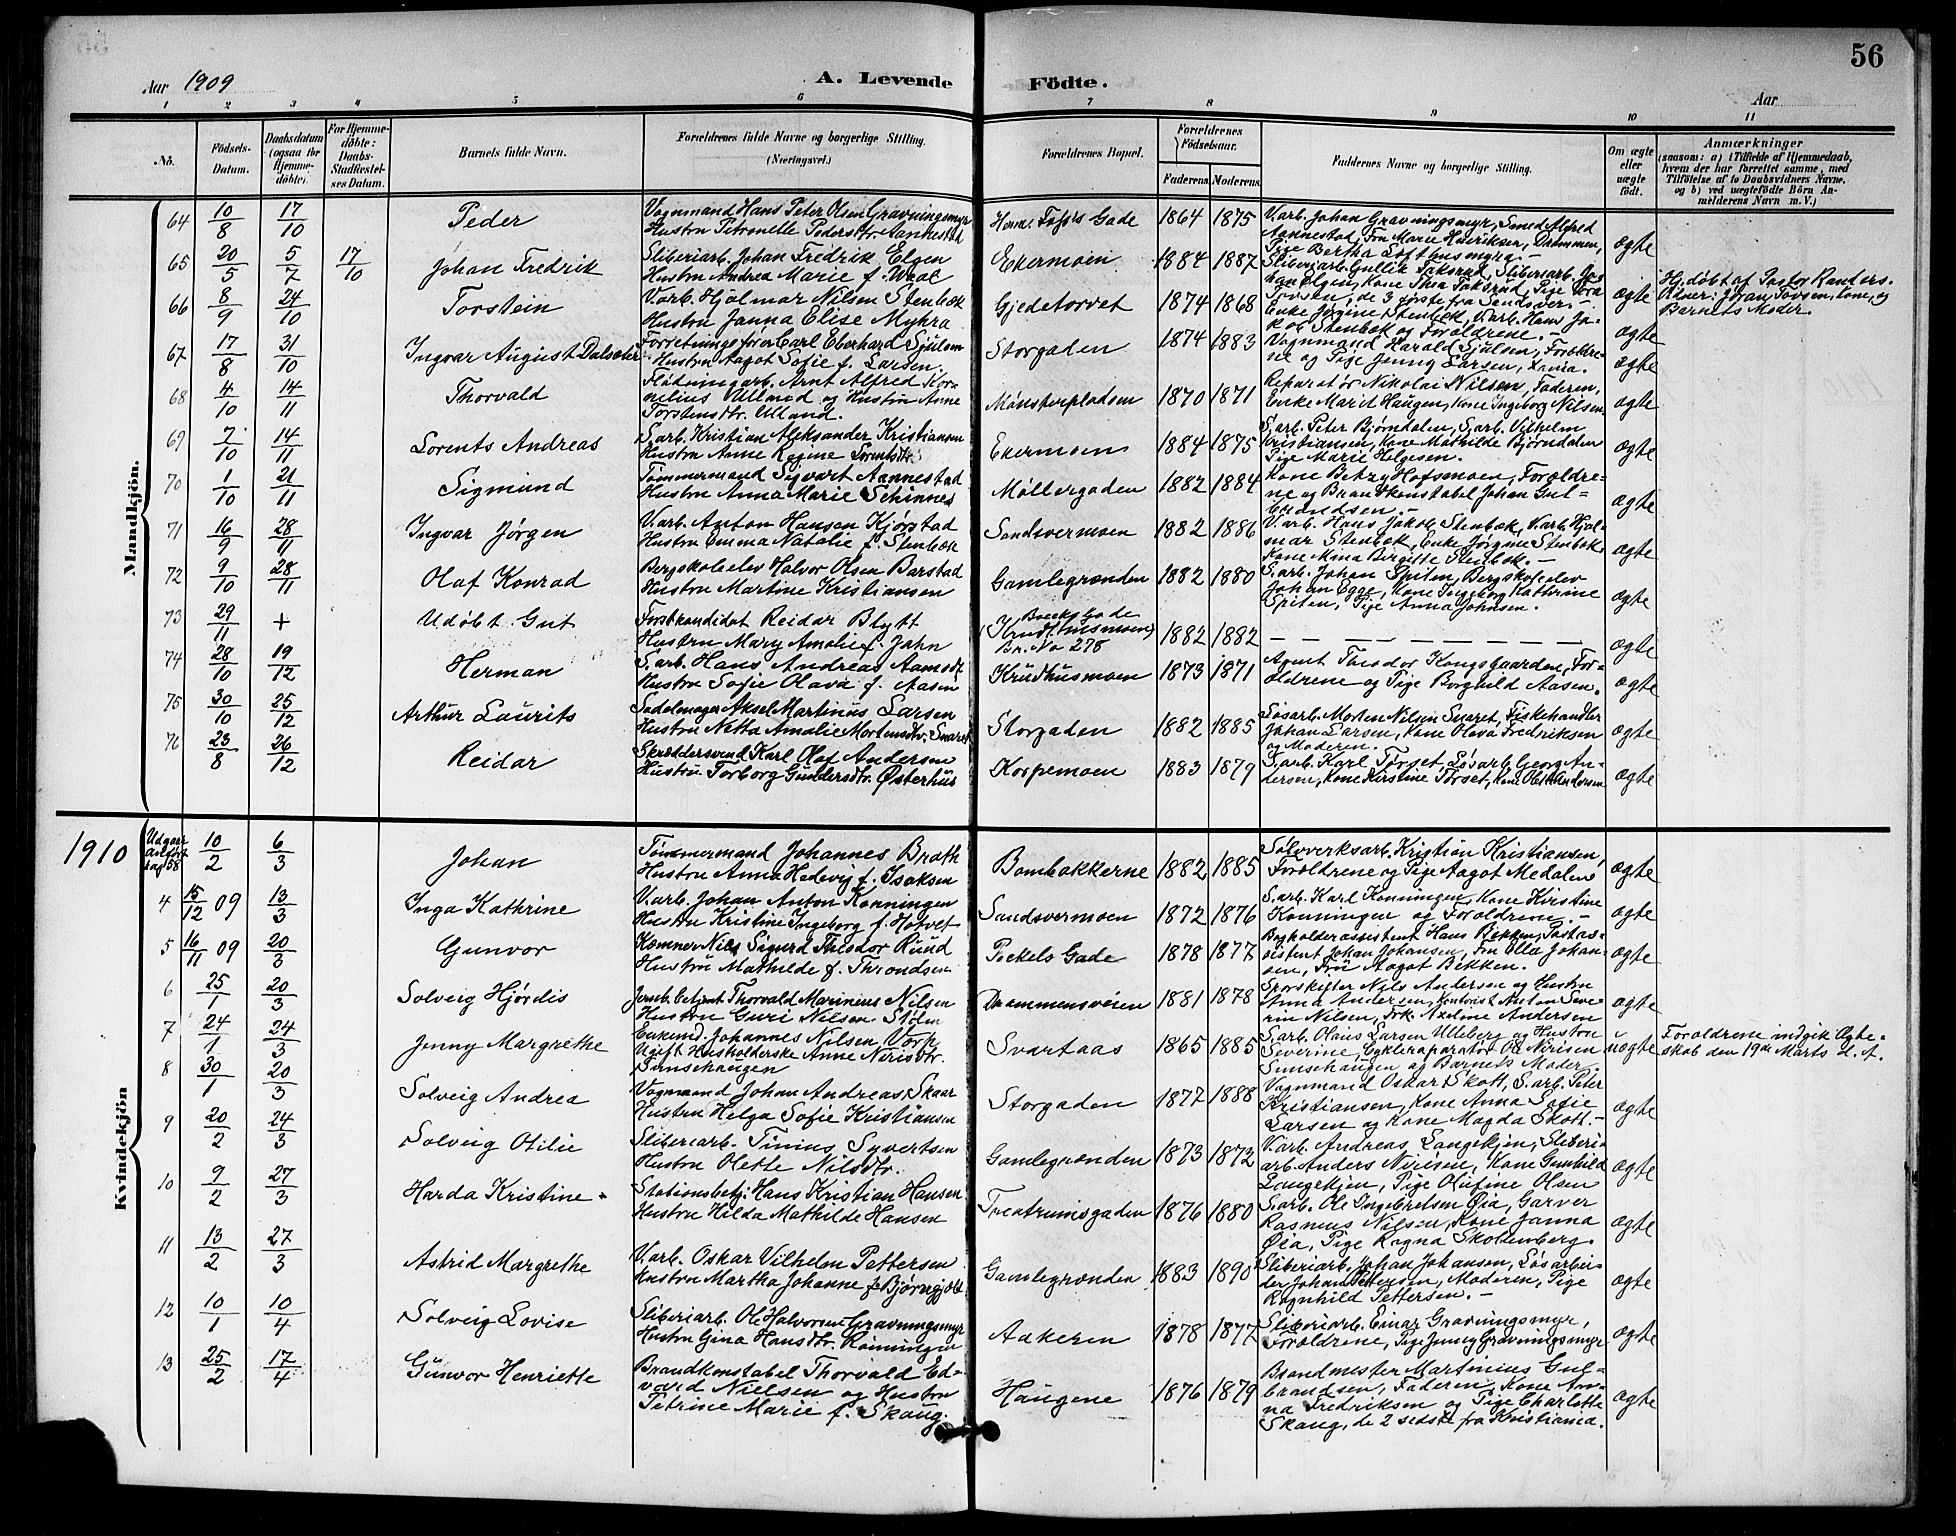 56
Aar 1909
A. Levende Födte.
Aar
1 2 3 4 5 6 7 8 9 10 11
No. | Födsels-Datum. | Daabsdatum (ogsaa for Hjemmedöbte). | For Hjemmedöbte: Daabs-Stadfæstelses Datum. | Barnets fulde Navn. | Forældrenes fulde Navne og borgerlige Stilling. (Næringsvei.) | Forældrenes Bopæl. | Forældrenes Födselsaar. Faderens. Moderens. | Faddernes Navne og borgerlige Stilling. | Om ægte eller uægte födt. | Anmærkninger (saasom: a) i Tilfælde af Hjemmedaab, hvem der har forrettet samme, med Tilföielse af to Daabsvidners Navne, og b) ved uægtefödte Börn Anmelderens Navn m. V.)
Mandkjön.
64 10/8 17/10 Peder Vognmand Hans Peter Olsen Gravningsmyr Hustru Petronelle Pedersdtr. Aannestad Herm. Foss's Gade 1864 1875 V.arb. Johan Gravningsmyr, Smed Alfred Aannestad, Fru Marie Henriksen, Drammen, Pige Bertha Lofthusmyra. — ægte
65 20/5 5/7 17/10 Johan Fredrik Sliberiarb. Johan Fredrik Elgen Hustru Andrea Marie f. Waal Ekermoen 1884 1887 Sliberiarb. Gullik Taksrud, Sliberiarb. Johan Elgen, Kone Thea Taksrud, Pige Tora Tovsen, de 3 første fra Sandsver. — ægte Hj. døbt af Pastor Randers. Vidner: Johan Tovsen, Kone, og Barnets Moder.
66 8/9 24/10 Torstein V.arb. Hjalmar Nilsen Stenbæk Hustru Janna Elise Myhra Gjedetorvet 1874 1868 Enke Jørgine Stenbæk, V.arb. Hans Jakob Stenbæk og Forældrene. ægte
67 17/8 31/10 Ingvar August Dalseter Forretningsfører Carl Eberhard Sjulsen Hustru Aagot Sofie f. Larsen. Storgaden 1874 1883 Vognmand Harald Sjulsen, Forældrene og Pige Jenny Larsen, ægte
68 4/10 14/11 Thorvald Flødningsarb. Arnt Alfred Kornelius Ulland og Hustru Anne Torstensdtr. Ulland. Mønsterpladsen 1870 1871 Reparatør Nikolai Nilsen, Faderen, Enke Marit Haugen, Kone Ingeborg Nilsen ægte
69 7/10 14/11 Lorents Andreas S.arb. Kristian Aleksander Kristiansen Hustru Anne Regine Lorentsdtr. Ekermoen 1884 1875 S.arb. Peter Bjørndalen, S.arb. Vilhelm Kristiansen, Kone Mathilde Bjørndalen Pige Marie Helgesen. ægte
70 1/10 21/11 Sigmund Tømmermand Sigvart Aannestad Hustru Anna Marie Schinnes Møllergaden 1882 1884 Kone Betzy Hofsmoen, Forældrene og Brandkonstabel Johan Gulbrandsen. — ægte
71 16/9 28/11 Ingvar Jørgen V.arb. Anton Hansen Kjørstad Hustru Emma Natalie f. Stenbæk Sandsvermoen 1882 1886 V.arb. Hans Jakob Stenbæk, V.arb. Hjalmar Stenbæk, Enke Jørgine Stenbæk, Kone Mina Birgitte Stenbæk. — ægte
72 9/10 28/11 Olaf Konrad Bergskoleelev Halvor Olsen Barstad Hustru Martine Kristiansen Gamlegrænden 1882 1880 S.arb. Johan Spiten, Bergskoleelev Johan Egge, Kone Ingeborg Kathrine Spiten, Pige Anna Johnsen. ægte
73 29/11 + Udøbt Gut Forstkandidat Reidar Blytt Hustru Mary Amalie f. Jahn J. Boecks Gade (Krudthusmoen) Br. No 278 1882 1882 — — — — — ægte
74 28/10 19/12 Herman S.arb. Hans Andreas Aamodt Hustru Sofie Olava f. Aasen Krudhusmoen 1873 1871 Agent Theodor Kongsgaarden, Forældrene og Pige Borghild Aasen. ægte
75 30/10 25/12 Arthur Laurits Sadelmager Aksel Martinius Larsen Hustru Netta Amalie Mortensdtr. Snaret Storgaden 1882 1885 Løsarb. Morten Nilsen Snaret, Fiskehandler Johan Larsen, Kone Olava Fredriksen og Moderen. ægte
76 23/8 26/12 Reidar Skræddersvend Karl Olaf Andersen Hustru Torborg Gundersdtr. Østerhus Korpemoen 1883 1879 S.arb. Karl Torset, Løsarb. Georg Andersen, Kone Kirstine Torset, Kone Oletta Andersen ægte
1910
Kvindekjön
Udgaar anført pag 58 10/2 6/3 Johan Tømmermand Johannes Brath Hustru Anna Hedevig f. Isaksen Bombakkerne 1882 1885 Sølvverksarb. Kristian Kristiansen, Forældrene og Pige Aagot Medalen ægte
4 15/12 09 13/3 Inga Kathrine V.arb. Johan Anton Konningen Hustru Kristine Ingeborg f. Hotvet Sandsvermoen 1872 1876 S.arb. Karl Konningen, Kone Kirstine Konningen og Forældrene. — ægte
5 16/11 09 20/3 Gunvor Kæmner Nils Sigurd Theodor Ruud Hustru Mathilde f. Throndsen Peckels Gade 1878 1877 Bogholderassistent Hans Bekken, Postassistent Johan Johansen, Fru Olla Johansen, Fru Aagot Bekken. ægte
6 25/1 20/3 Solveig Hjørdis Jernb. betjent Thorvald Marinius Nilsen Hustru Guri Nilsen Stølen Drammensveien 1881 1878 Sporskifter Nils Andersen og Hustru Anna Andersen, Kontorist Anton Severin Nilsen, Frk. Axeline Andersen ægte
7 24/1 24/3 Jenny Margrethe Enkemd. Johannes Nilsen Vorp Ugift Husholderske Anne Nirisdtr. Sunsehaugen Svartaas 1865 1885 S.arb. Olaus Larsen Ulleberg og Hustru Severine, Cykleraparatør Ole Nirisen Sunsehaugen og Barnets Moder. uægte Forældrene indgik Ægteskab den 19de Marts d. A.
8 30/1 20/3 Solveig Andrea Vognmand Johan Andreas Skaar Hustru Helga Sofie Kristiansen Storgaden 1877 1888 Vognmand Oskar Skott, S.arb. Peter Kristiansen, Kone Anna Sofie Larsen og Kone Magda Skott. — ægte
9 20/2 24/3 Solveig Otilie Sliberiarb. Tinius Syvertsen Hustru Olette Nilsdtr. Gamlegrænden 1873 1872 V.arb. Andreas Langekjen, Sliberiarb. Anders Nirisen, Kone Gunhild Langekjen, Pige Olufine Olsen ægte
10 9/2 27/3 Harda Kristine Stationsbetj. Hans Kristian Hansen Hustru Hilda Mathilde Hansen Theatrumsgaden 1876 1880 S.arb. Ole Ingebretsen Øia, Garver Rasmus Nilsen, Kone Janna Øia, Pige Ragna Skollenborg. ægte
11 13/2 27/3 Astrid Margrethe V.arb. Oskar Vilhelm Pettersen Hustru Martha Johanne f. Bjørngjeld Gamlegrænden 1883 1890 Sliberiarb. Johan Johansen, Løsarbeider Johan Pettersen, Moderen, Pige Ragnhild Pettersen. — ægte
12 10/1 10/4 Solveig Lovise Sliberiarb. Ole Halvorsen Gravningsmyr Hustru Gina Hansdtr. Rønningen Aakeren 1878 1877 Sliberiarb. Einar Gravningsmyr, Forældrene, Pige Jenny Gravningsmyr ægte
13 25/2 17/4 Gunvor Henriette Brandkonstabel Thorvald Edvard Nielsen og Hustru Petrine Marie f. Skaug. Haugene 1876 1879 Brandmester Martinius Gulbrandsen, Faderen, Kone Anna Fredriksen og Pige Charlotte Skaug, de 2 sidste fra Kristiania. ægte